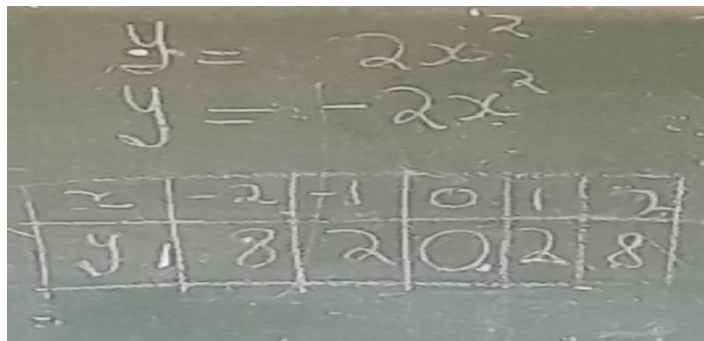 y = 2x²
y = -2x²
x -2 -1 0 1 2
y 8 2 0 2 8